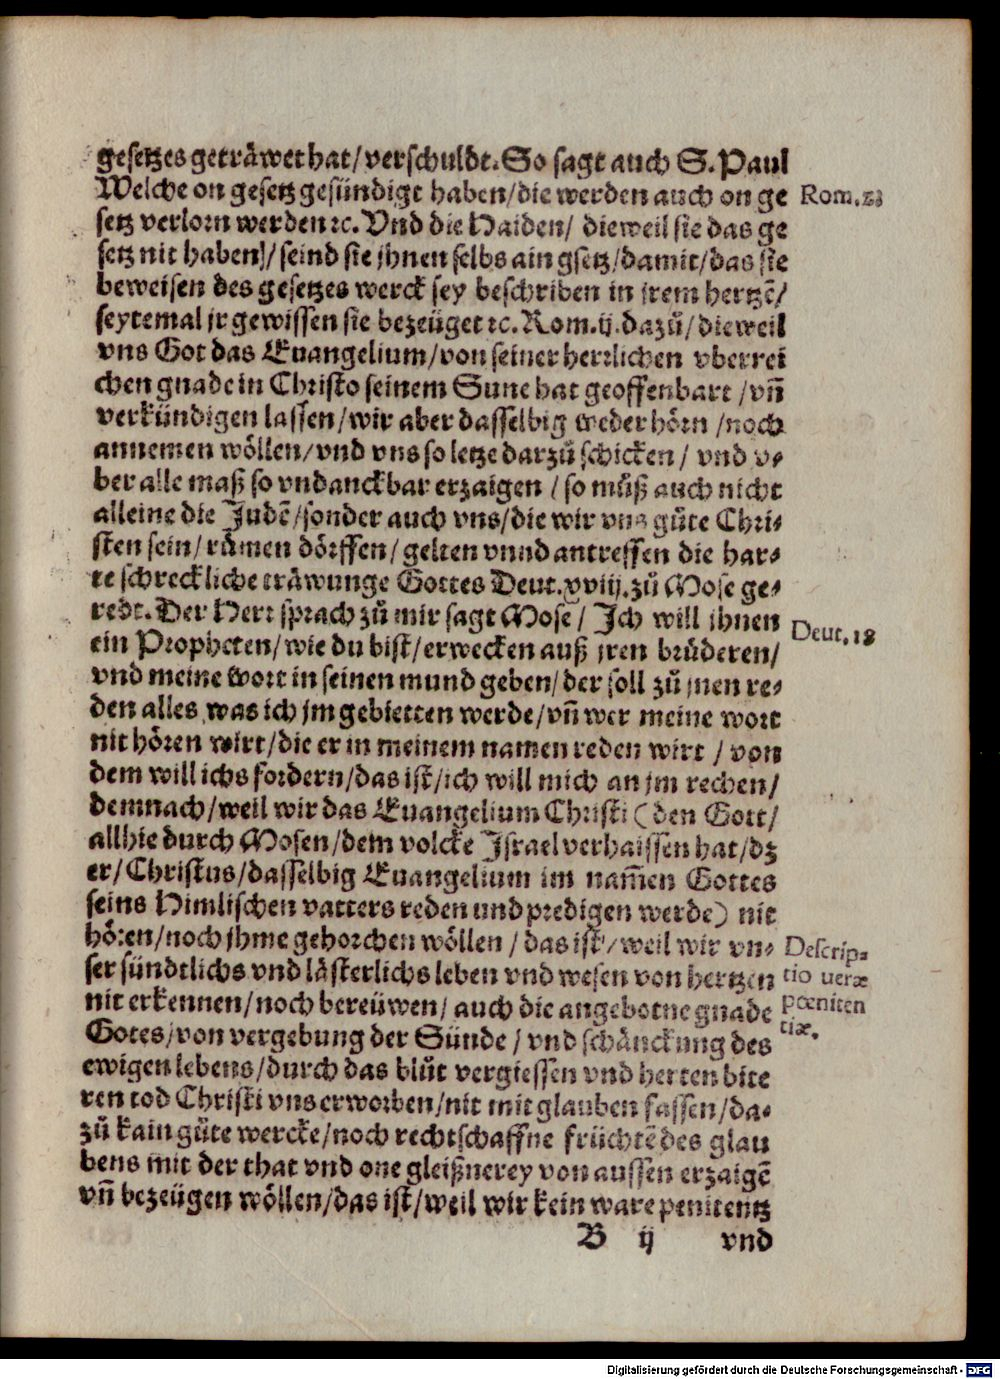 gesetzes geträwet hat/verschuldt. So sagt auch S. Paul
Welche on gesetz gesündigt haben/die werden auch on ge
Rom. 2
setz verlorn werden ꝛc. Vnd die Haiden/ dieweil sie das ge
setz nit haben/seind sie jhnen selbs ain gsetz/damit/das sie
beweisen des gesetzes werck sey beschriben in jrem hertzē/
seytemal jr gewissen sie bezeüget ꝛc. Rom.ij. dazů/dieweil
vns Got das Euangelium/von seiner herrlichen vberrei
chen gnade in Christo seinem Sune hat geoffenbart /vñ
verkündigen lassen/wir aber dasselbig weder hörn /noch
annemen wöllen/vnd vns so letze darzů schicken/ vnd v⸗
ber alle maß so vndanckbar erzaigen /so můß auch nicht
alleine die Judē/sonder auch vns/die wir vns gůte Chri⸗
sten sein/rümen dörffen/gelten vnnd antreffen die har⸗
te schreckliche träwunge Gottes Deut. xviij. zů Mose ge⸗
redt. Der Herr sprach zů mir sagt Mose/ Ich will jhnen
Deut. 18
ein Propheten/wie du bist/erwecken auß jren brüderen/
vnd meine wort in seinen mund geben/der soll zů jnen re⸗
den alles was ich jm gebietten werde/vñ wer meine wort
nit hören wirt/die er in meinem namen reden wirt /von
dem will ichs fordern/das ist/ich will mich an jm rechen/
demnach/weil wir das Euangelium Christi (den Gott/
allhie durch Mosen/dem volcke Israel verhaissen hat/dz
er/Christus/dasselbig Euangelium im nam̃en Gottes
seins Himlischen vatters reden und predigen werde) nit
hören/noch jhme gehorchen wöllen /das ist/weil wir vn⸗
Descrip⸗
ser sündtlichs vnd lästerlichs leben vnd wesen von hertzen
tio ueræ
nit erkennen/noch bereüwen/ auch die angebotne gnade
pœniten
Gotes/von vergebung der Sünde /vnd schänckung des
tiæ.
ewigen lebens/durch das blůt vergiessen vnd herten bite
ren tod Christi vns erworben/nit mit glauben fassen/da⸗
zů kain gůte wercke/noch rechtschaffne früchtē des glau
bens mit der that vnd one gleißnerey von aussen erzaigē
vñ bezeügen wöllen/das ist/weil wir kein ware penitentz
B ij vnd
Digitalisierung gefördert durch die Deutsche Forschungsgemeinschaft - DFG